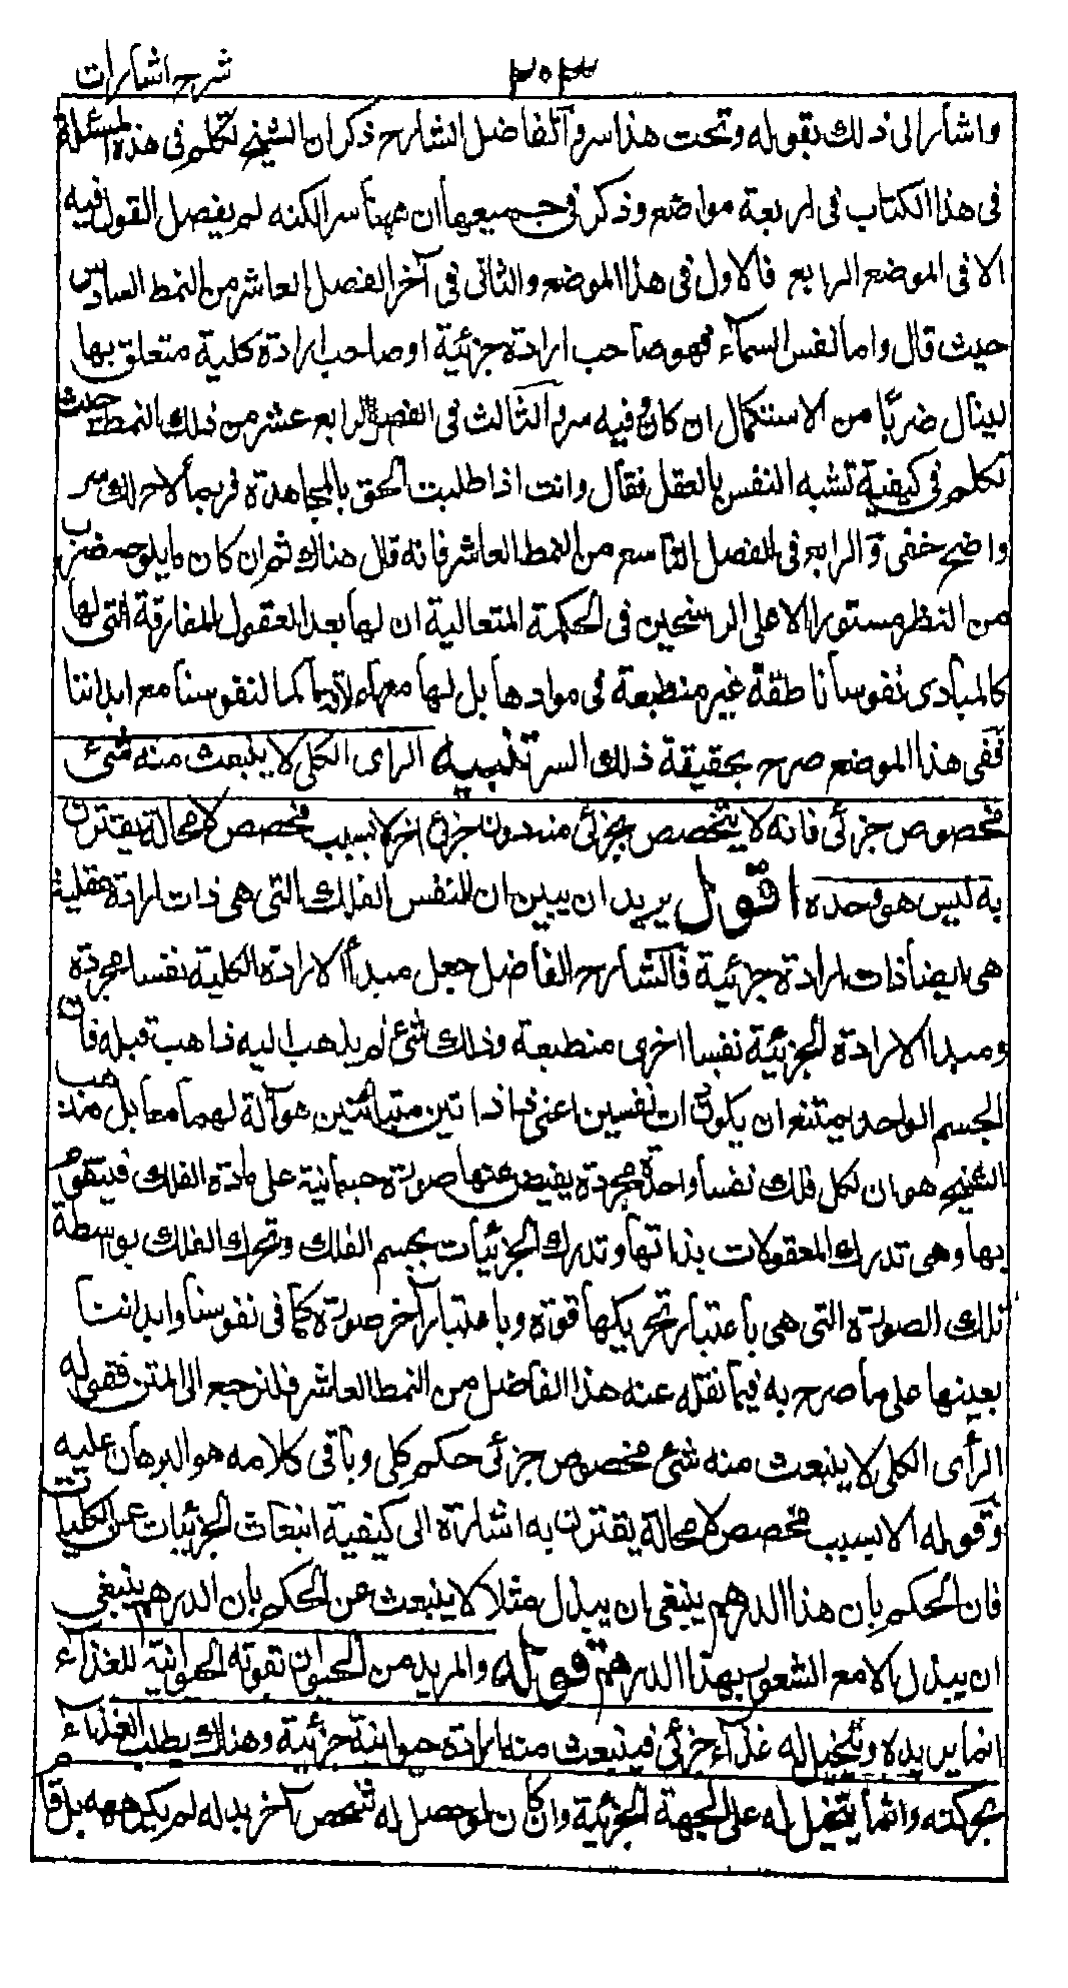 شرح اشارات
٢٠٣
واشار الى ذلك بقوله وتحت هذا سر والفاضل الشارح ذكر ان الشيخ تكلم فى هذه المسئلة
فى هذا الكتاب فى اربعة مواضع وذكر فى جميعها ان ههنا سرا لكنه لم يفصل القول فيه
الا فى الموضع الرابع فالاول فى هذا الموضع والثانى فى آخر الفصل العاشر من النمط السادس
حيث قال واما نفس السماء فهو صاحب ارادة جزئية او صاحب ارادة كلية متعلق بها
لينال ضربا من الاستكمال ان كان وفيه سر والثالث فى الفصل الرابع عشر من ذلك النمط حيث
تكلم فى كيفية تشبه النفس بالعقل فقال وانت اذا طلبت الحق بالمجاهدة فربما لاح لك سر
واضح خفى والرابع فى الفصل التاسع من النمط العاشر فانه قال هناك ثم ان كان ما يلوحه ضرب
من النظر مستورا الا على الراسخين فى الحكمة المتعالية ان لها بعد العقول المفارقة التى لها
كالمبادى نفوسا ناطقة غير منطبعة فى موادها بل لها معها علاقة ما كما لنفوسنا مع ابداننا
ففى هذا الموضع صرح بحقيقة ذلك السر تنبيه الراى الكلى لا ينبعث منه شئ
مخصوص جزئى فانه لا يتخصص بجزئى منه دون جزئى آخر الا بسبب مخصص لا محالة يقترن
به ليس هو وحده اقول يريد ان يبين ان للنفس الفلك التى هى ذات ارادة عقلية
هى ايضا ذات ارادة جزئية فالشارح الفاضل جعل مبدأ الارادة الكلية نفسا مجردة
ومبدا الارادة الجزئية نفسا اخرى منطبعة وذلك شئ لم يذهب اليه ذاهب قبله فان
الجسم الواحد يمتنع ان يكون ذات نفسين اعنى ذا ذاتين متباينتين هو آلة لهما معا بل مذهب
الشيخ هو ان لكل فلك نفسا واحدة مجردة يفيض عنها صورة جسمانية على مادة الفلك فيتقوم
بها وهى تدرك المعقولات بذاتها وتدرك الجزئيات بجسم الفلك وتحرك الفلك بواسطة
تلك الصورة التى هى باعتبار تحريكها قوة وباعتبار آخر صورة كما فى نفوسنا وابداننا
بعينها على ما صرح به فيما نقله عنه هذا الفاضل من النمط العاشر فلنرجع الى المتن فقوله
الرأى الكلى لا ينبعث منه شئ مخصوص جزئى حكم كلى وباقى كلامه هو البرهان عليه
وقوله الا بسبب مخصص لا محالة يقترن به اشارة الى كيفية انبعاث الجزئيات عن الكليات
فان الحكم بان هذا الدرهم ينبغى ان يبذل مثلا لا ينبعث عن الحكم بان الدرهم ينبغى
ان يبذل الا مع الشعور بهذا الدرهم قوله والمريد من الحيوان بقوته الحيوانية للغذاء
انما يريده ويتخيل له غذاء جزئى فينبعث منه ارادة حيوانية جزئية وهناك يطلب الغذاء
بحركته وانما يتخيل له على الجهة الجزئية وان كان لو حصل له شخص آخر بدله لم يكرهه بل قا